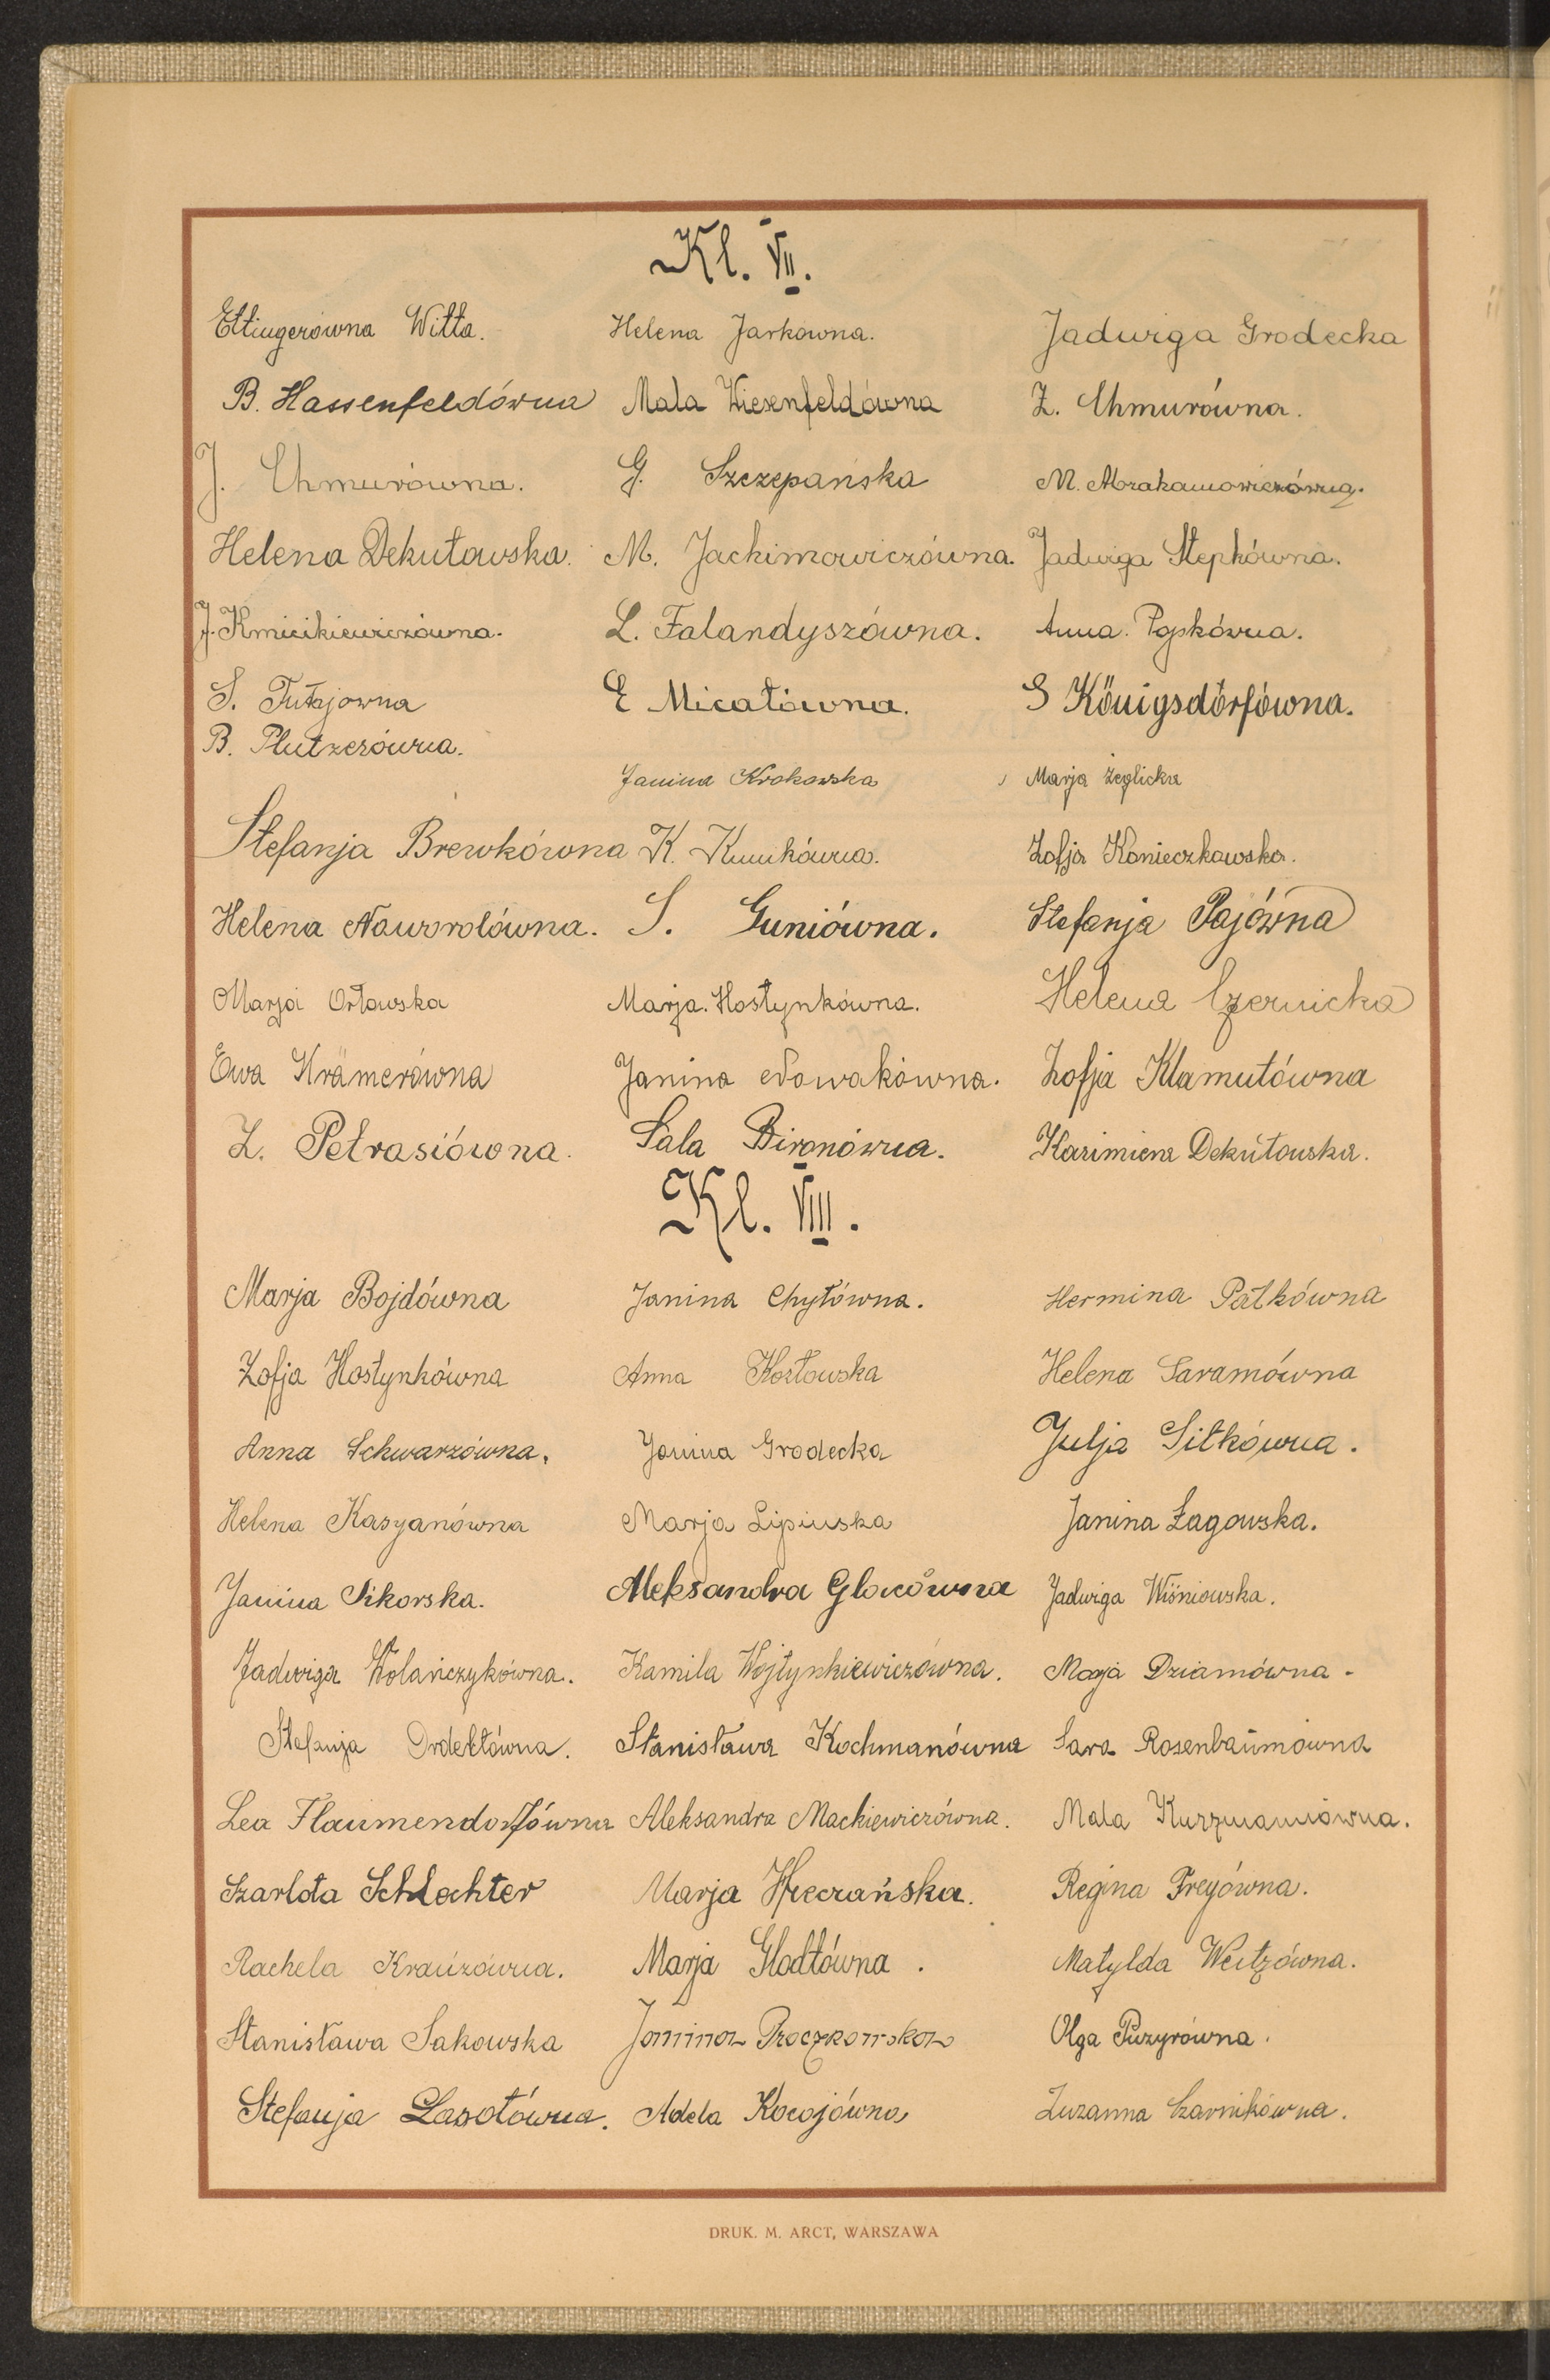 Kl. VII.
Ettingerówna Witta. Helena Jarkówna. Jadwiga Grodecka
B. Hassenfeldówna Mala Wiesenfeldówna Z. Chmurówna.
J. Chmurówna. G. Szczepańska M. Abrahamowiczówna.
Helena Dekutowska. M. Jackimowiczówna. Jadwiga Stepkówna.
J. Kmicikiewiczówna. L. Falandyszówna. Anna Popkówna.
S. Tutajowna E Micałówna. S Königsdörfówna.
B. Plutzerówna.
Janina Krokowska Marja Żeglicka
Stefanja Brewkówna K. Zofja Konieczkowska.
Helena Naworolówna. S. Guniówna. Stefanja Pajówna
Marja Orłowska Marja Hostynkówna. Helena Czernicka
Ewa Krämerówna Janina Nowakówna. Zofja Klamutówna
Z. Petrasiówna. Sala Bironówna. Kazimiera Dekutowska.
Kl. VIII.
Marja Bojdówna Janina Chytówna. Hermina Pałkówna
Zofja Hostynkówna Anna Kozłowska Helena Saramówna
Anna Schwarzówna. Janina Grodecka Julja Sitkówna.
Helena Kasyanówna Marja Lipinska Janina Łagowska.
Janina Sikorska. Aleksandra Glowówna Jadwiga Wiśniowska.
Jadwiga Wolańczykówna. Kamila Wojtynkiewiczówna. Marja Dziamówna.
Stefanja Ordełtówna. Stanisława Kochmanówna Sara Rosenbaumówna
Lea Flaumendorfówna Aleksandra Mackiewiczówna. Mala Kurzmannówna.
Szarlota Schlachter Marja Hreczańska. Regina Freyówna.
Rachela Krauzówna. Marja Głodtówna. Matylda Weitzówna.
Stanisława Sakowska Janina Proczkowska Olga Puzyrówna.
Stefanja Lasotówna. Adela Kocojówna Zuzanna Czarnikówna.
DRUK. M. ARCT, WARSZAWA